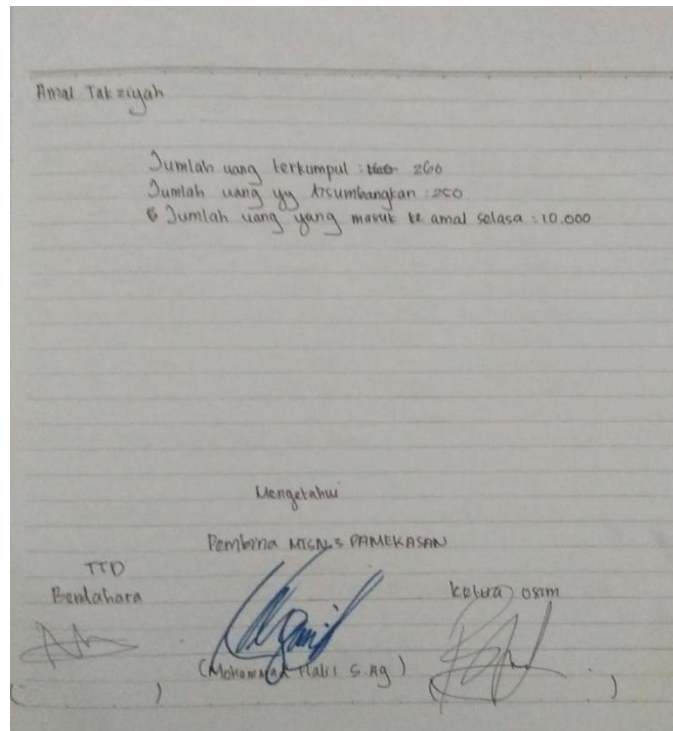 Amal Takziyah
Jumlah uang terkumpul : 260
Jumlah uang yg disumbangkan : 250
Jumlah uang yang masuk ke amal selasa : 10.000
Mengetahui
Pembina MTSN 3 PAMEKASAN
TTD
Bendahara
Ketua OSIM
(Mohammad S.Ag)
( )
( )